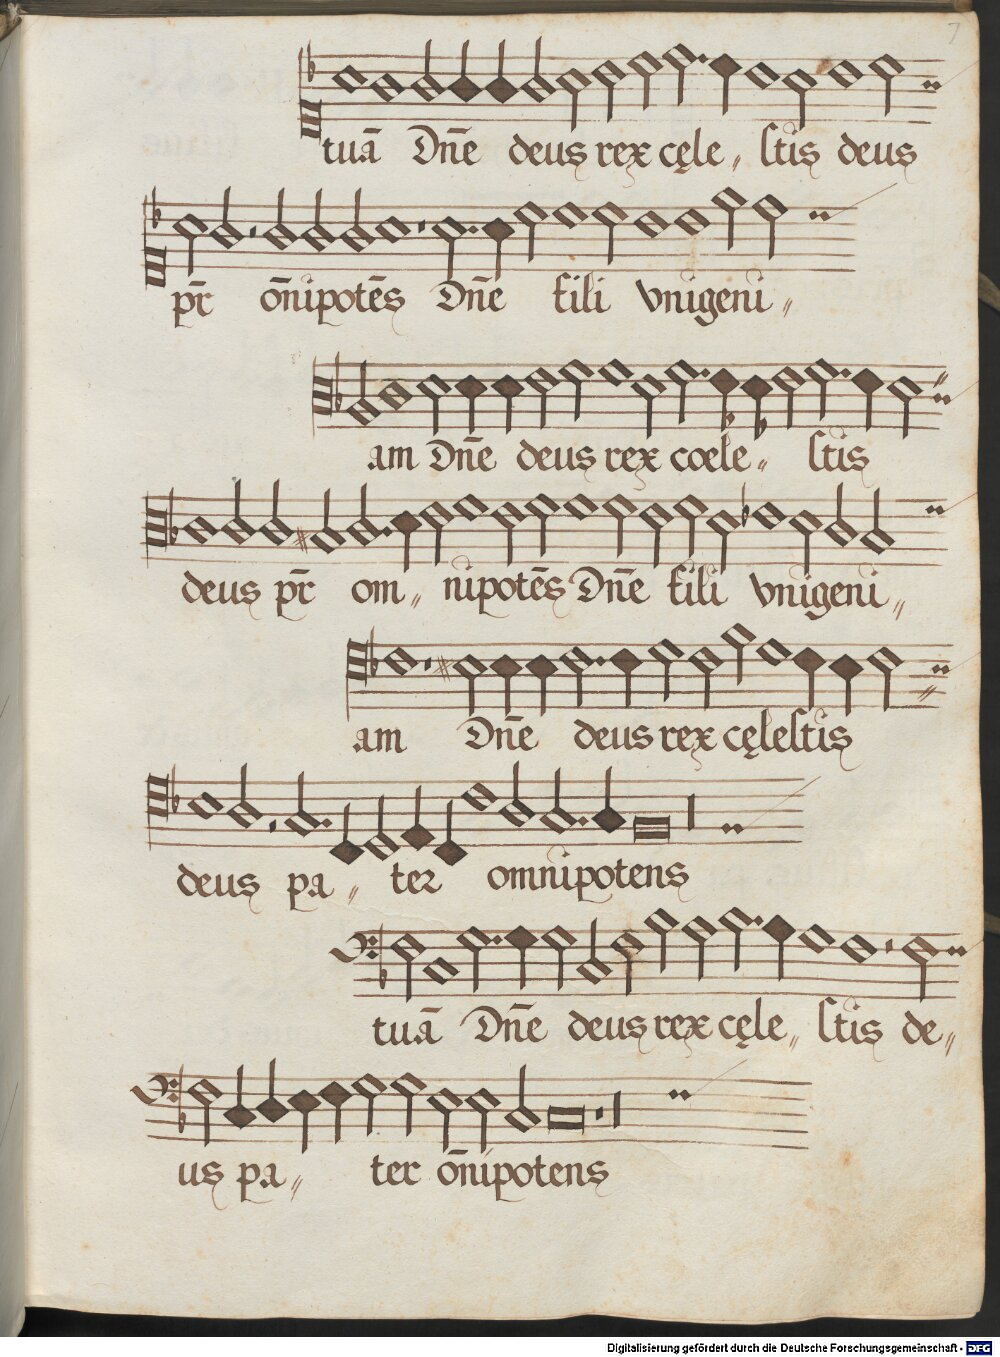 7
tuā Dn̄e deus rex cęle〃 stis deus
pr̄ ōnipotēs Dn̄e fili vnigeni〃
am Dn̄e deus rex coele〃 stis
deus pr̄ om〃 nipotēs Dn̄e fili vnigeni〃
am Dn̄e deus rex cęlestis
deus pa〃 ter omnipotens
tuā Dn̄e deus rex cęle〃 stis de〃
us pa〃 ter ōnipotens
Digitalisierung gefördert durch die Deutsche Forschungsgemeinschaft - DFG